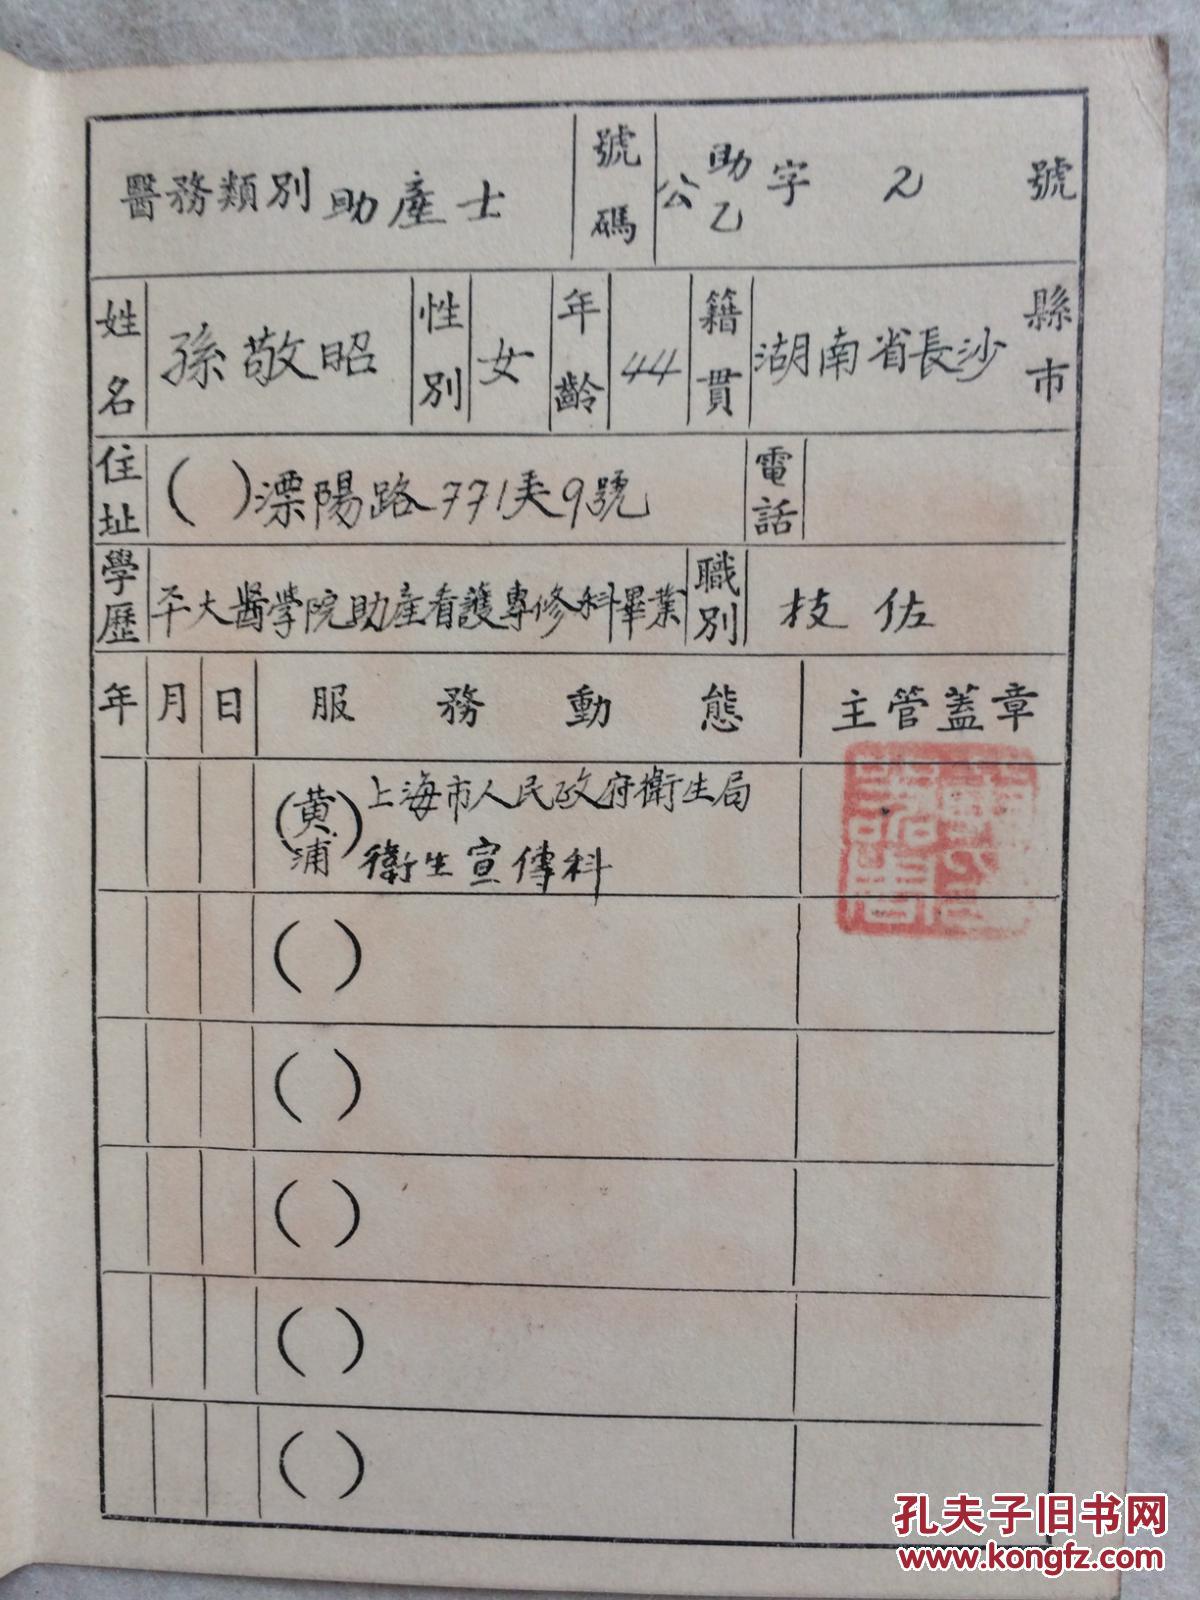 醫務類別 助產士 號碼 公助乙字 2 號
姓名 孫敬昭 性別 女 年齡 44 籍貫 湖南省長沙 縣市
住址 ( )溧陽路771弄9號 電話
學歷 平大醫學院助產看護專修科畢業 職別 技佐
年 月 日 服務動態 主管蓋章
(黃浦) 上海市人民政府衛生局
衛生宣傳科
( )
( )
( )
( )
( )
孔夫子旧书网
www.kongfz.com